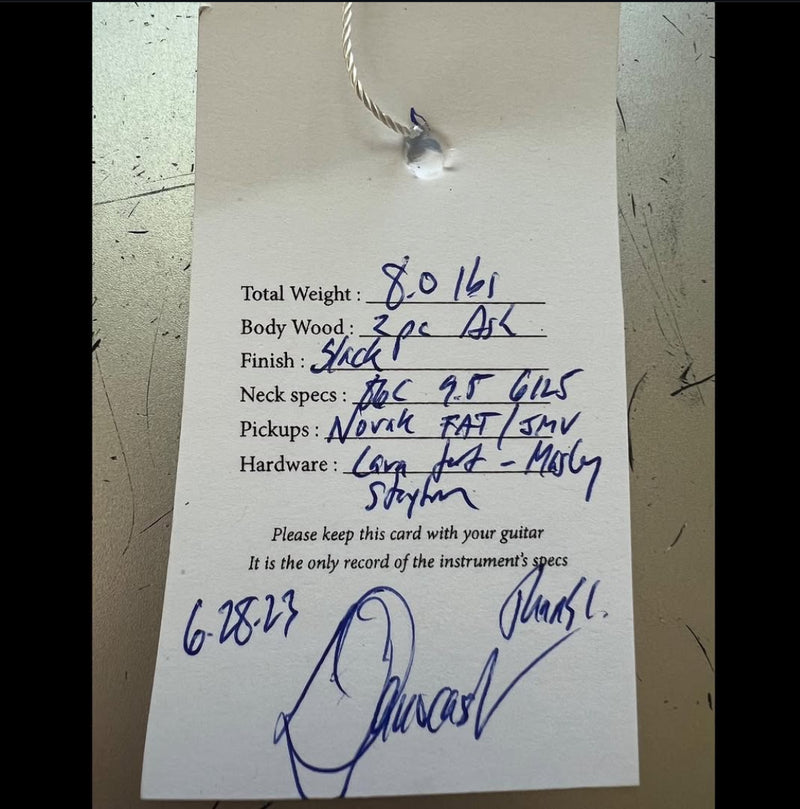 Total Weight : 8.0 lbs
Body Wood : 2 pc Ash
Finish : Slack
Neck specs : 9.5 6125
Pickups : Novak FAT / JMV
Hardware :
Please keep this card with your guitar
It is the only record of the instrument's specs
6-28-23
Danocaster